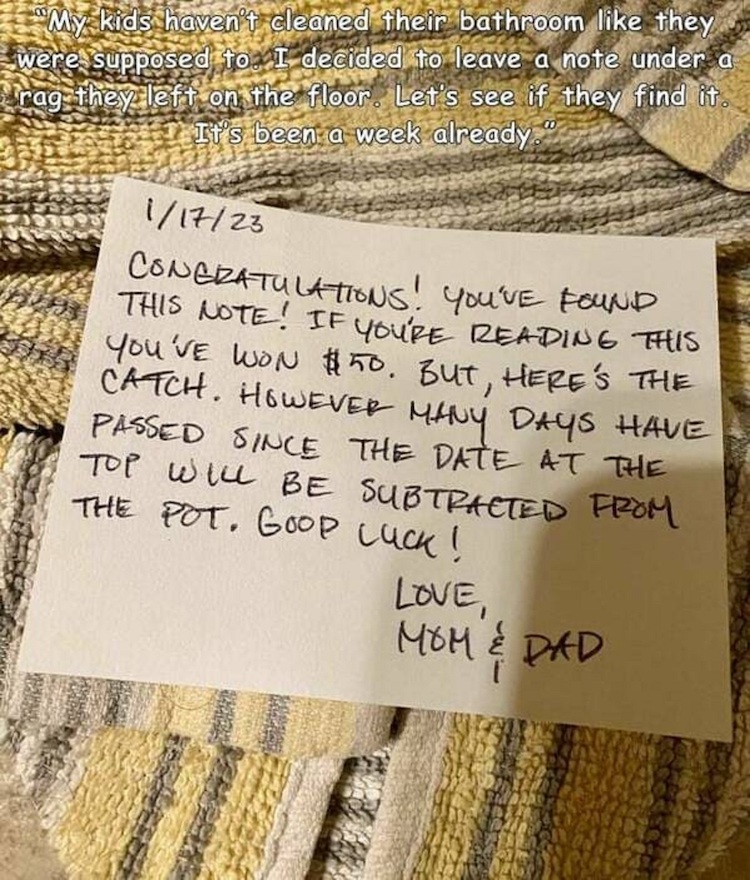 "My kids haven't cleaned their bathroom like they
were supposed to. I decided to leave a note under a
rag they left on the floor. Let's see if they find it.
It's been a week already."
1/17/23
CONGRATULATIONS! YOU'VE FOUND
THIS NOTE! IF YOU'RE READING THIS
YOU'VE WON $50. BUT, HERE'S THE
CATCH. HOWEVER MANY DAYS HAVE
PASSED SINCE THE DATE AT THE
TOP WILL BE SUBTRACTED FROM
THE POT. GOOD LUCK!
LOVE,
MOM & DAD